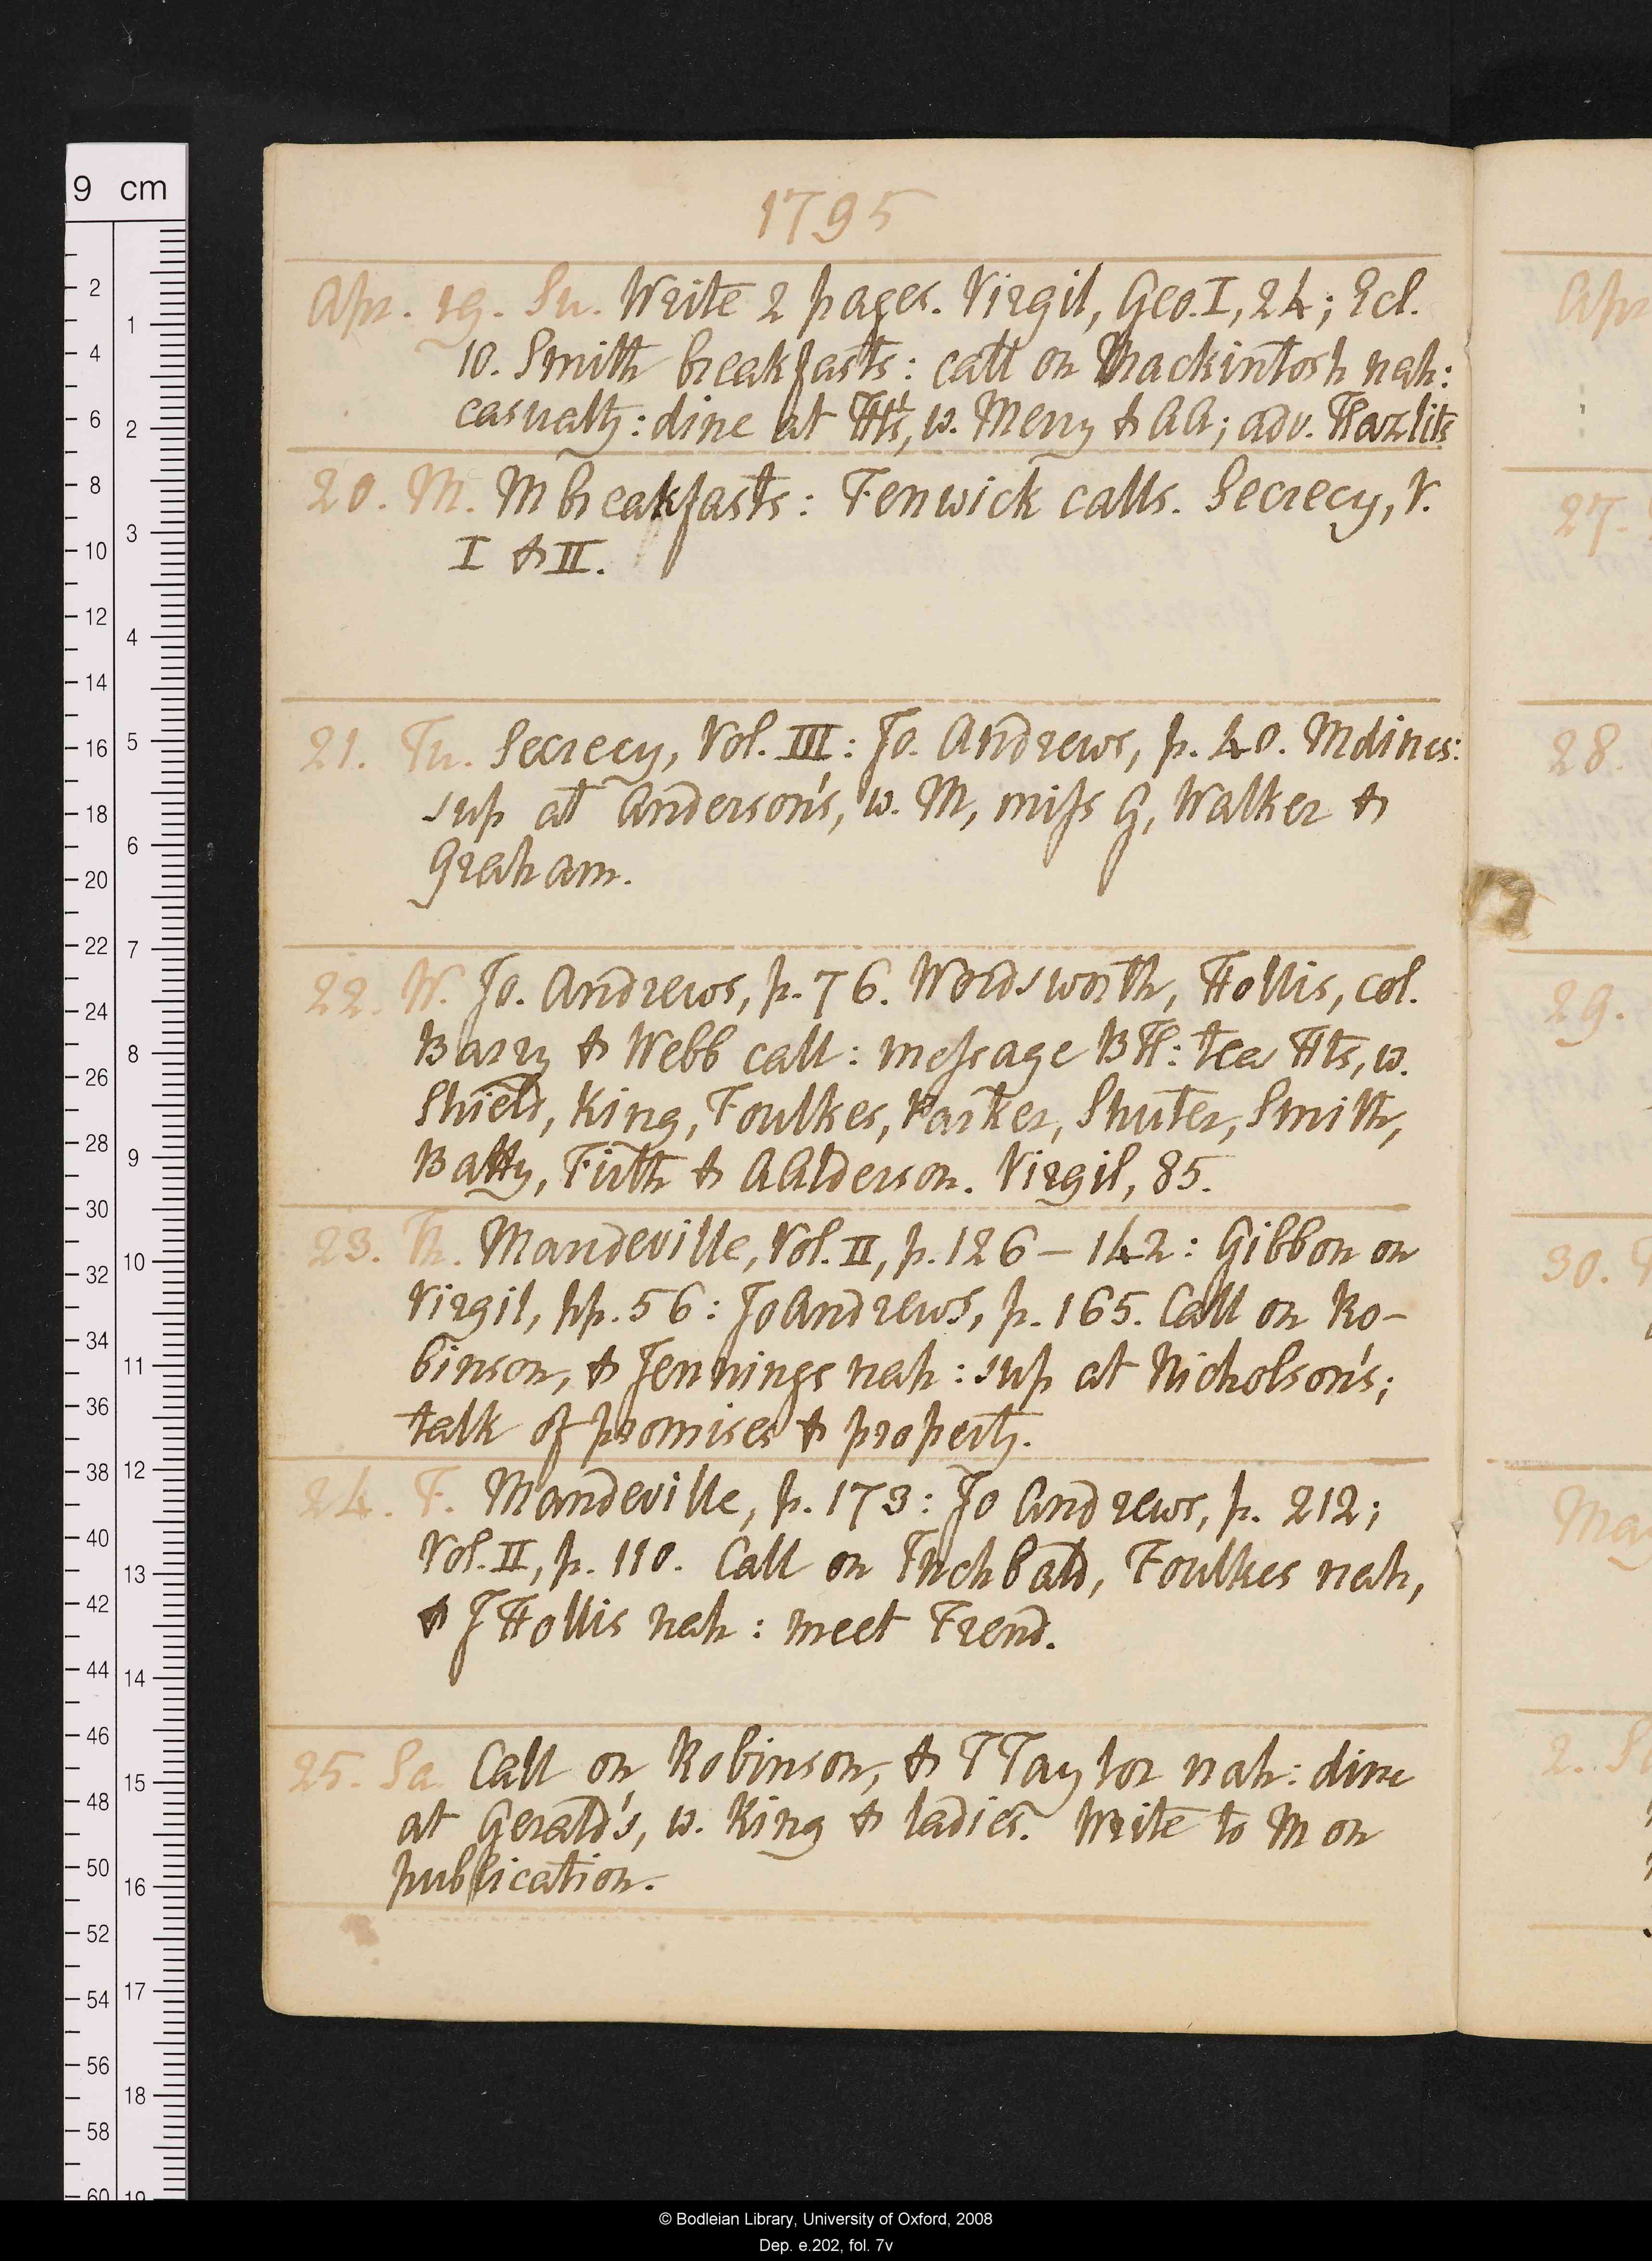 1795
Apr. 19. Su. Write 2 pages. Virgil, Geo. I, 24; Ecl.
10. Smith breakfasts: call on Mackintosh nah:
casualty: dine at Ht's, w. Merry & AA; adv. Hazlits
20. M. M breakfasts: Fenwick calls. Secrecy, V.
I & II.
21. Tu. Secrecy, Vol. III: Jo. Andrews, p. 40. M dines:
sup at Anderson's, w. M, miss G, Walker &
Graham.
22. W. Jo. Andrews, p. 76. Wordsworth, Hollis, col.
Barry & Webb call: message BH: tea Hts, w.
Shield, King, Foulkes, Parker, Shuter, Smith,
Batty, Firth & AAlderson. Virgil, 85.
23. Th. Mandeville, Vol. II, p. 126 – 142: Gibbon on
Virgil, pp. 56: Jo Andrews, p. 165. Call on Ro-
binson, & Jennings nah: sup at Nicholson's;
talk of promises & property.
24. F. Mandeville, p. 173: Jo Andrews, p. 212;
Vol. II, p. 110. Call on Inchbald, Foulkes nah,
& J Hollis nah: meet Frend.
25. Sa. Call on Robinson, & T Taylor nah: dine
at Gerald's, w. King & ladies. Write to M on
publication.
Apr
27.
28.
29.
30.
May
2. S
9 cm
2
4
6
8
10
12
14
16
18
20
22
24
26
28
30
32
34
36
38
40
42
44
46
48
50
52
54
56
58
60
1
2
3
4
5
6
7
8
9
10
11
12
13
14
15
16
17
18
19
© Bodleian Library, University of Oxford, 2008
Dep. e.202, fol. 7v